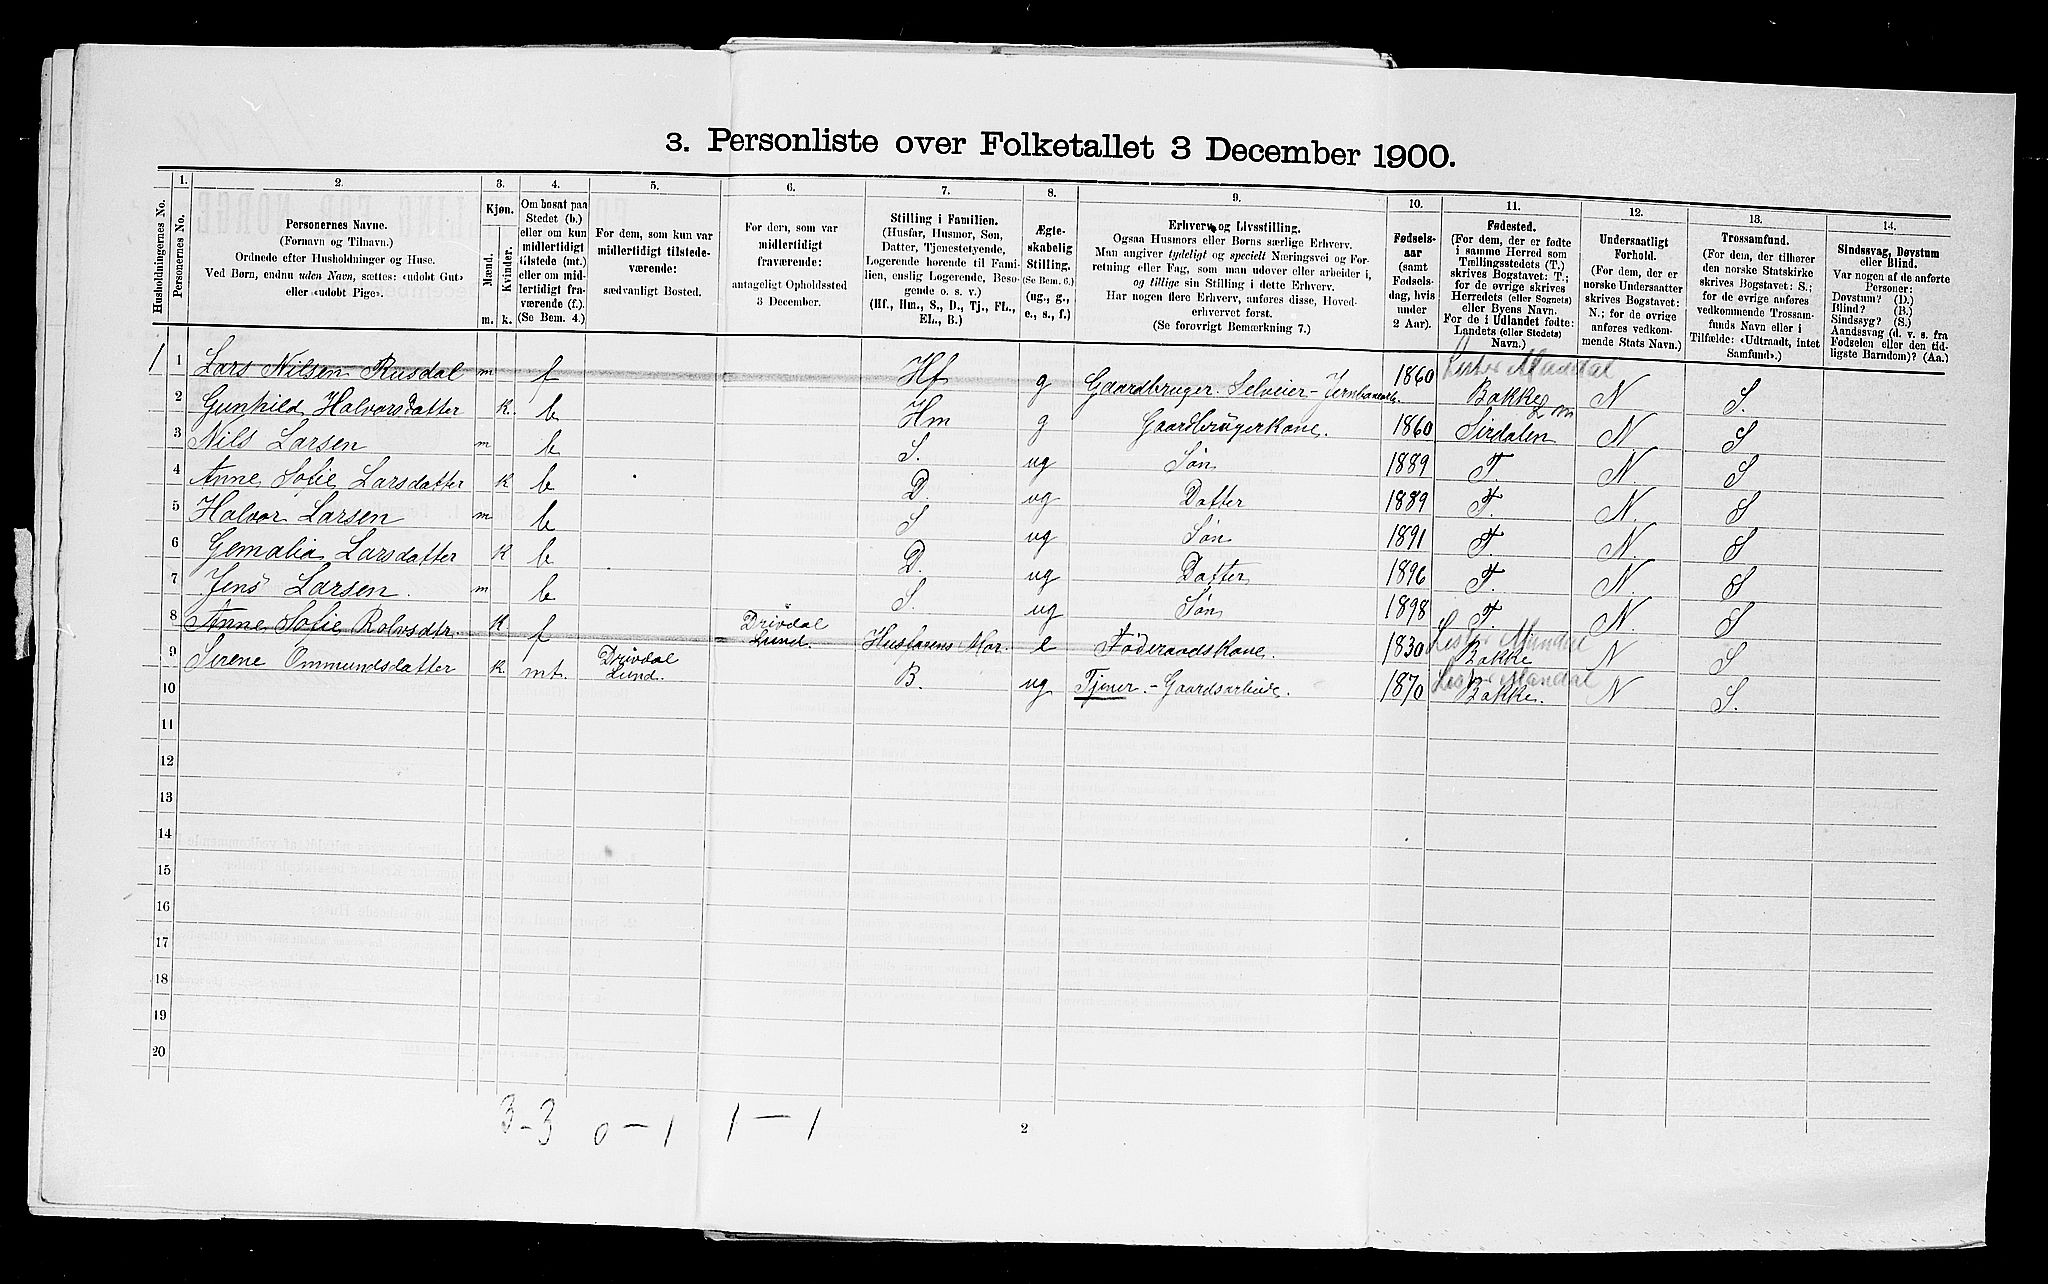 3. Personliste over Folketallet 3 December 1900.
Husholdningernes No.
1.
Personernes No.
2.
Personernes Navne.
(Fornavn og Tilnavn.)
Ordnede efter Husholdninger og Huse.
Ved Børn, endnu uden Navn, sættes: «udobt Gut»
eller «udobt Pige».
3.
Kjøn.
Mænd.
Kvinder.
m.
k.
4.
Om bosat paa
Stedet (b.)
eller om kun
midlertidigt
tilstede (mt.)
eller om mid-
lertidigt fra-
værende (f.).
(Se Bem. 4.)
5.
For dem, som kun var
midlertidigt tilstede-
værende:
sædvanligt Bosted.
6.
For dem, som var
midlertidigt
fraværende:
antageligt Opholdssted
3 December.
7.
Stilling i Familien.
(Husfar, Husmor, Søn,
Datter, Tjenestetyende,
Logerende hørende til Fami-
lien, enslig Logerende, Besø-
gende o. s. v.)
(Hf., Hm., S., D., Tj., FL.,
EL., B.)
8.
Ægte-
skabelig
Stilling.
(Se Bem. 6.)
(ug., g.,
e., s., f.)
9.
Erhverv og Livsstilling.
Ogsaa Husmors eller Børns særlige Erhverv.
Man angiver tydeligt og specielt Næringsvei og For-
retning eller Fag, som man udøver eller arbeider i,
og tillige sin Stilling i dette Erhverv.
Har nogen flere Erhverv, anføres disse, Hoved-
erhvervet først.
(Se forøvrigt Bemærkning 7.)
10.
Fødsels-
aar
(samt
Fødsels-
dag, hvis
under
2 Aar).
11.
Fødested.
(For dem, der er fødte
i samme Herred som
Tællingsstedets (T.)
skrives Bogstavet: T.;
for de øvrige skrives
Herredets (eller Sognets)
eller Byens Navn.
For de i Udlandet fødte:
Landets (eller Stedets)
Navn.)
12.
Undersaatligt
Forhold.
(For dem, der er
norske Undersaatter
skrives Bogstavet:
N.; for de øvrige
anføres vedkom-
mende Stats Navn.)
13.
Trossamfund.
(For dem, der tilhører
den norske Statskirke
skrives Bogstavet: S.;
for de øvrige anføres
vedkommende Trossam-
funds Navn eller i
Tilfælde: «Udtraadt, intet
Samfund».)
14.
Sindssvag, Døvstum
eller Blind.
Var nogen af de anførte
Personer:
Døvstum? (D.)
Blind? (B.)
Sindssyg? (S.)
Aandssvag (d. v. s. fra
Fødselen eller den tid-
ligste Barndom)? (Aa.)
1 1 Lars Nilsen Rusdal m f Hf g Gaardbruger Selveier - 1860 Lister Mandal Bakke N S.
2 Gunhild Halvorsdatter k. b Hm g Gaardbrügerkone. 1860 L M Sirdalen N S
3 Nils Larsen m b S. ug Søn 1889 T. N. S
4 Anne Sofie Larsdatter k b D. ug Datter 1889 T. N. S
5 Halvor Larsen m b S ug Søn 1891 T. N S
6 Gemalia Larsdatter k b D. ug Datter 1896 T. N. S
7 Jens Larsen. m b S. ug Søn 1898 T. N S
8 Anne Sofie Rolvsdtr. k f Drivdal Lund. Husfarens Mor. e Føderaadskone. 1830 Lister Mandal Bakke N S
9 Sirene Ommundsdatter k. mt. Drivdal Lund. B. ug Tjener. - Gaardsarbeide. 1870 Lister Mandal Bakke. N S.
10
11
12
13
14
15
16
17
18
19
20
3-3 0-1 1-1
2